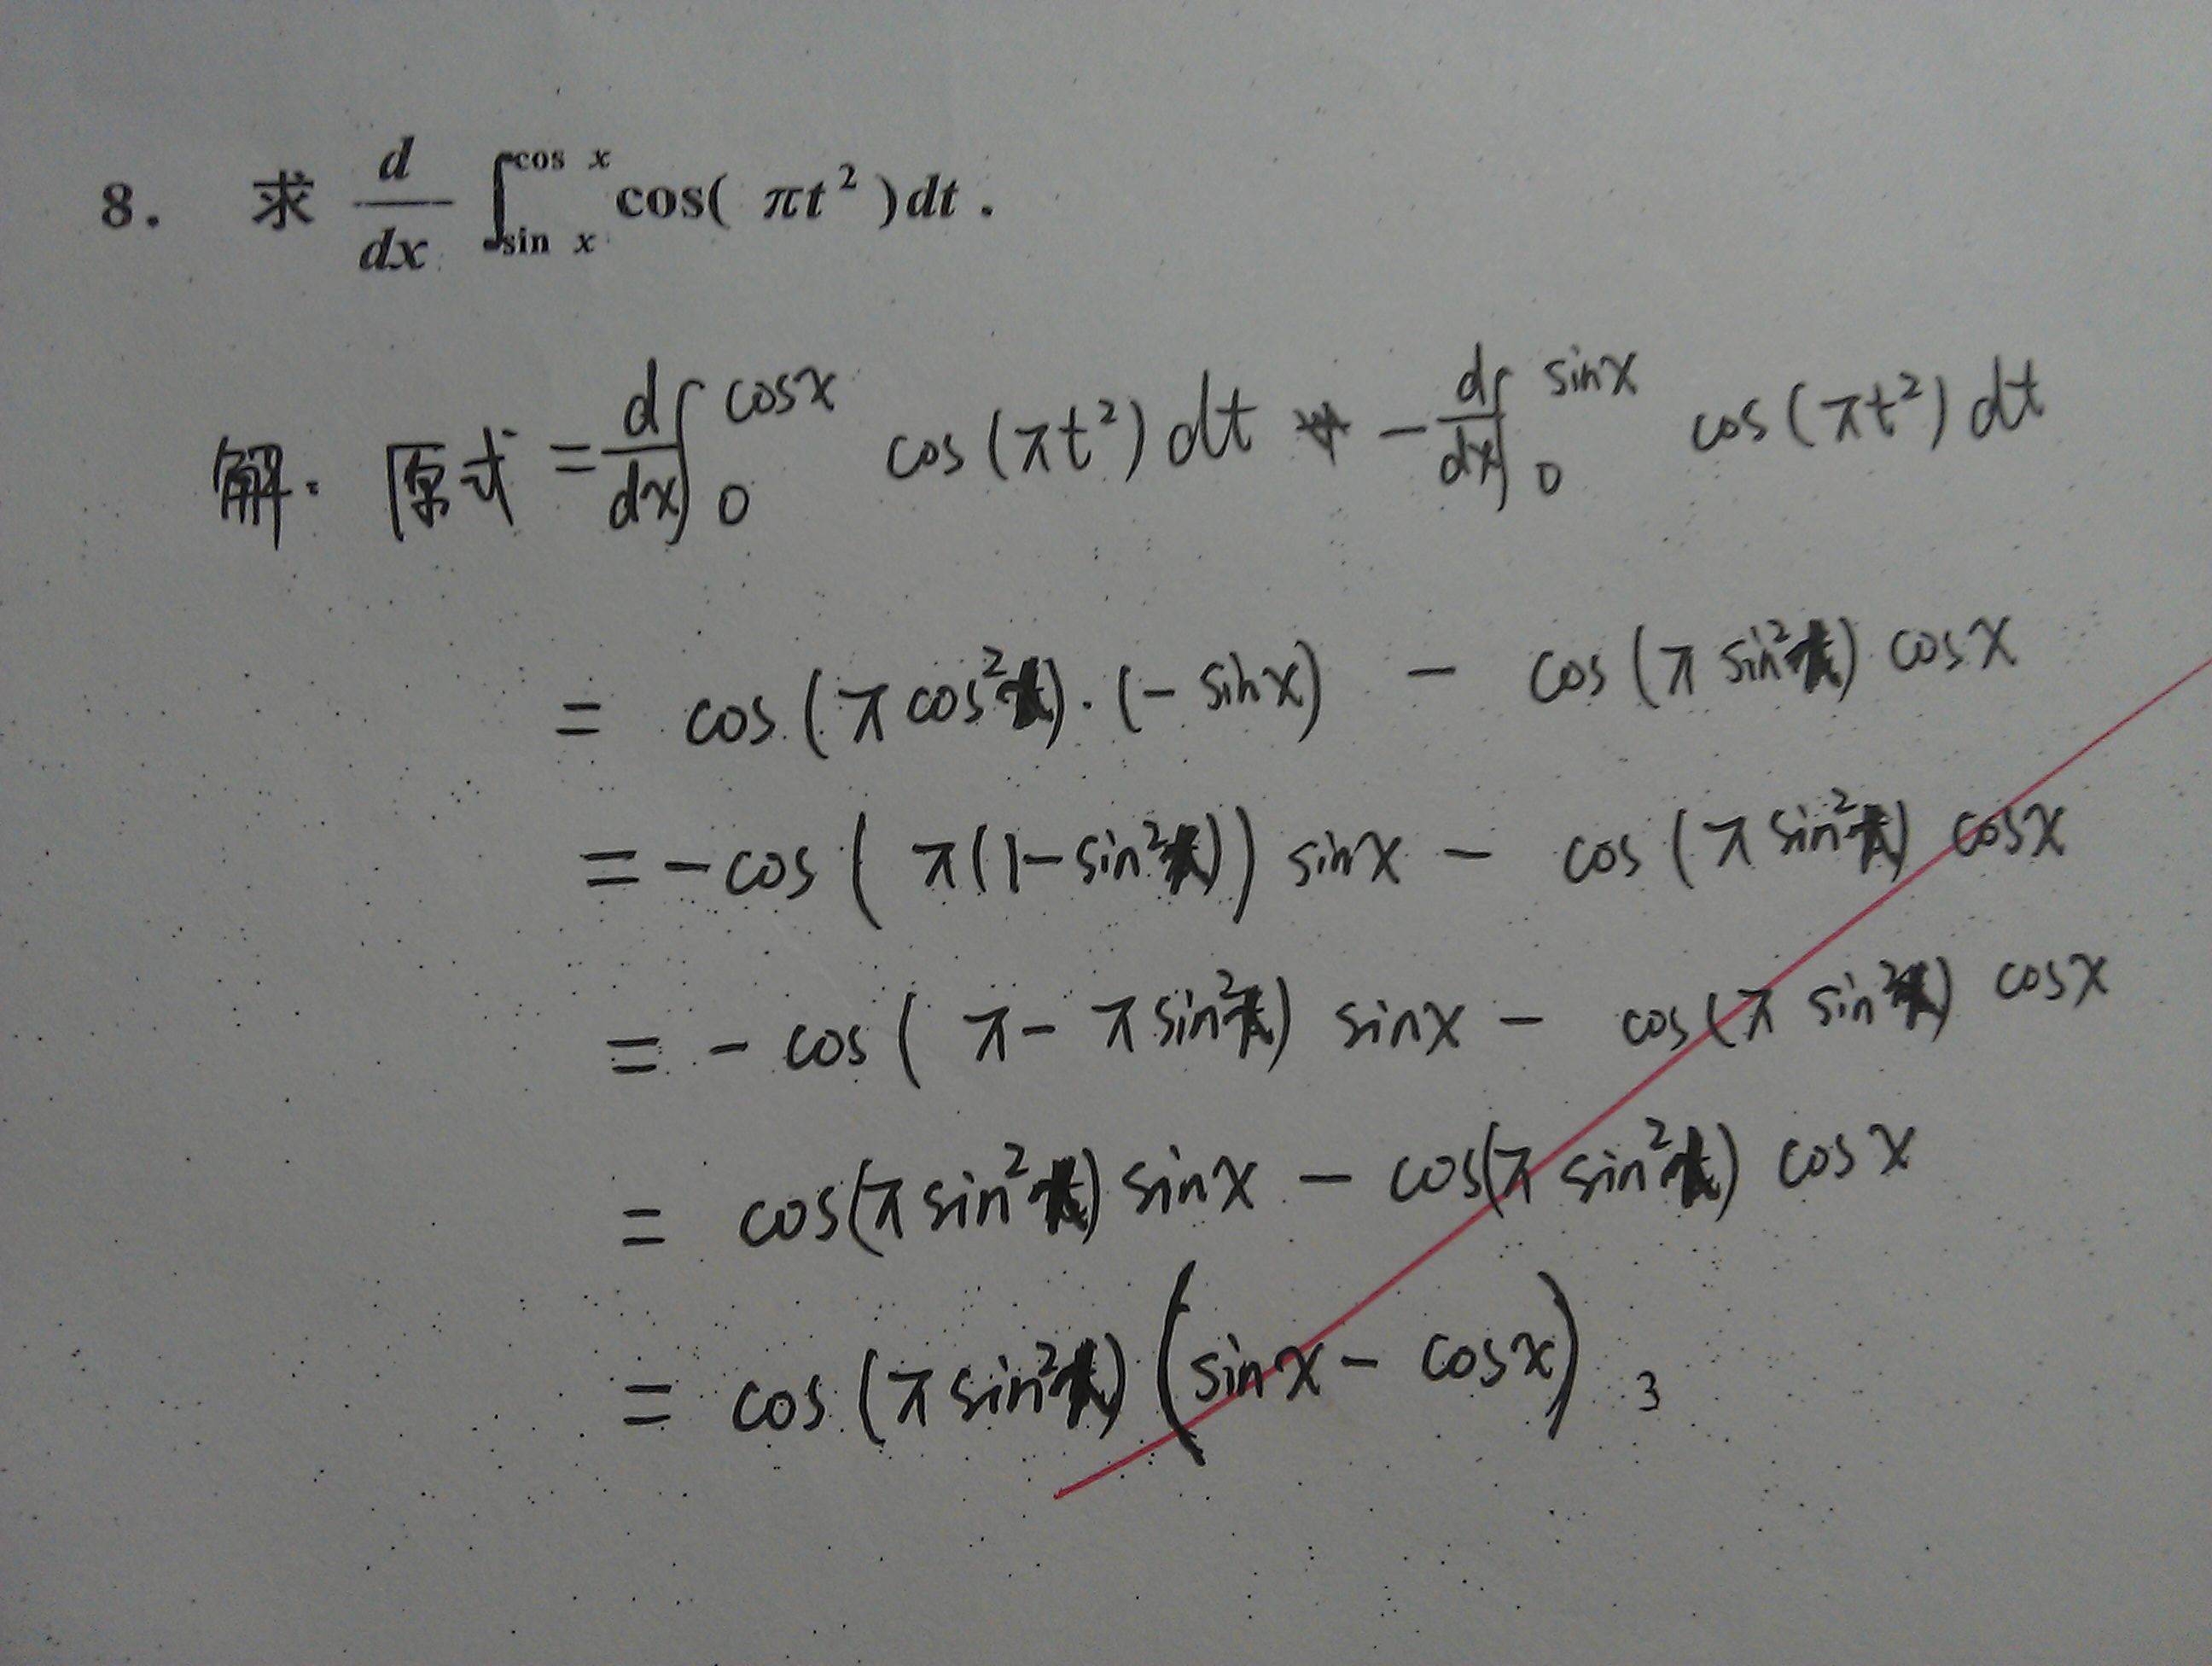 8. 求 d/dx ∫_{sin x}^{cos x} cos( πt² )dt .
解: 原式 = d/dx ∫_0^{cosx} cos(πt²)dt - d/dx ∫_0^{sinx} cos(πt²)dt
= cos(πcos²x)·(-sinx) - cos(πsin²x)cosx
= -cos(π(1-sin²x))sinx - cos(πsin²x)cosx
= -cos(π-πsin²x)sinx - cos(πsin²x)cosx
= cos(πsin²x)sinx - cos(πsin²x)cosx
= cos(πsin²x)(sinx-cosx) 3